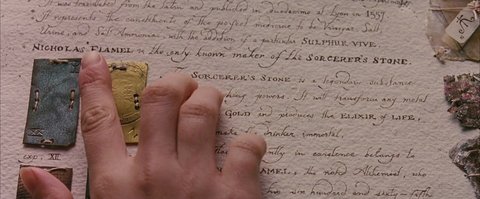 It was translated from the Latin and published in Dundarme at Lyon in 1557
It represents the constituents of the perfect medicine to be Vinegar, Salt,
Urine, and Sall Ammoniac, with the addition of a particular SULPHUR VIVE.
NICHOLAS FLAMEL is the only known maker of the SORCERER'S STONE.
SORCERER'S STONE is a legendary substance
powers. It will transform any metal
GOLD and produces the ELIXIR OF LIFE,
make the drinker immortal.
in existence belongs to
the noted Alchemist, who
six hundred and sixty-fifth
XX
XII